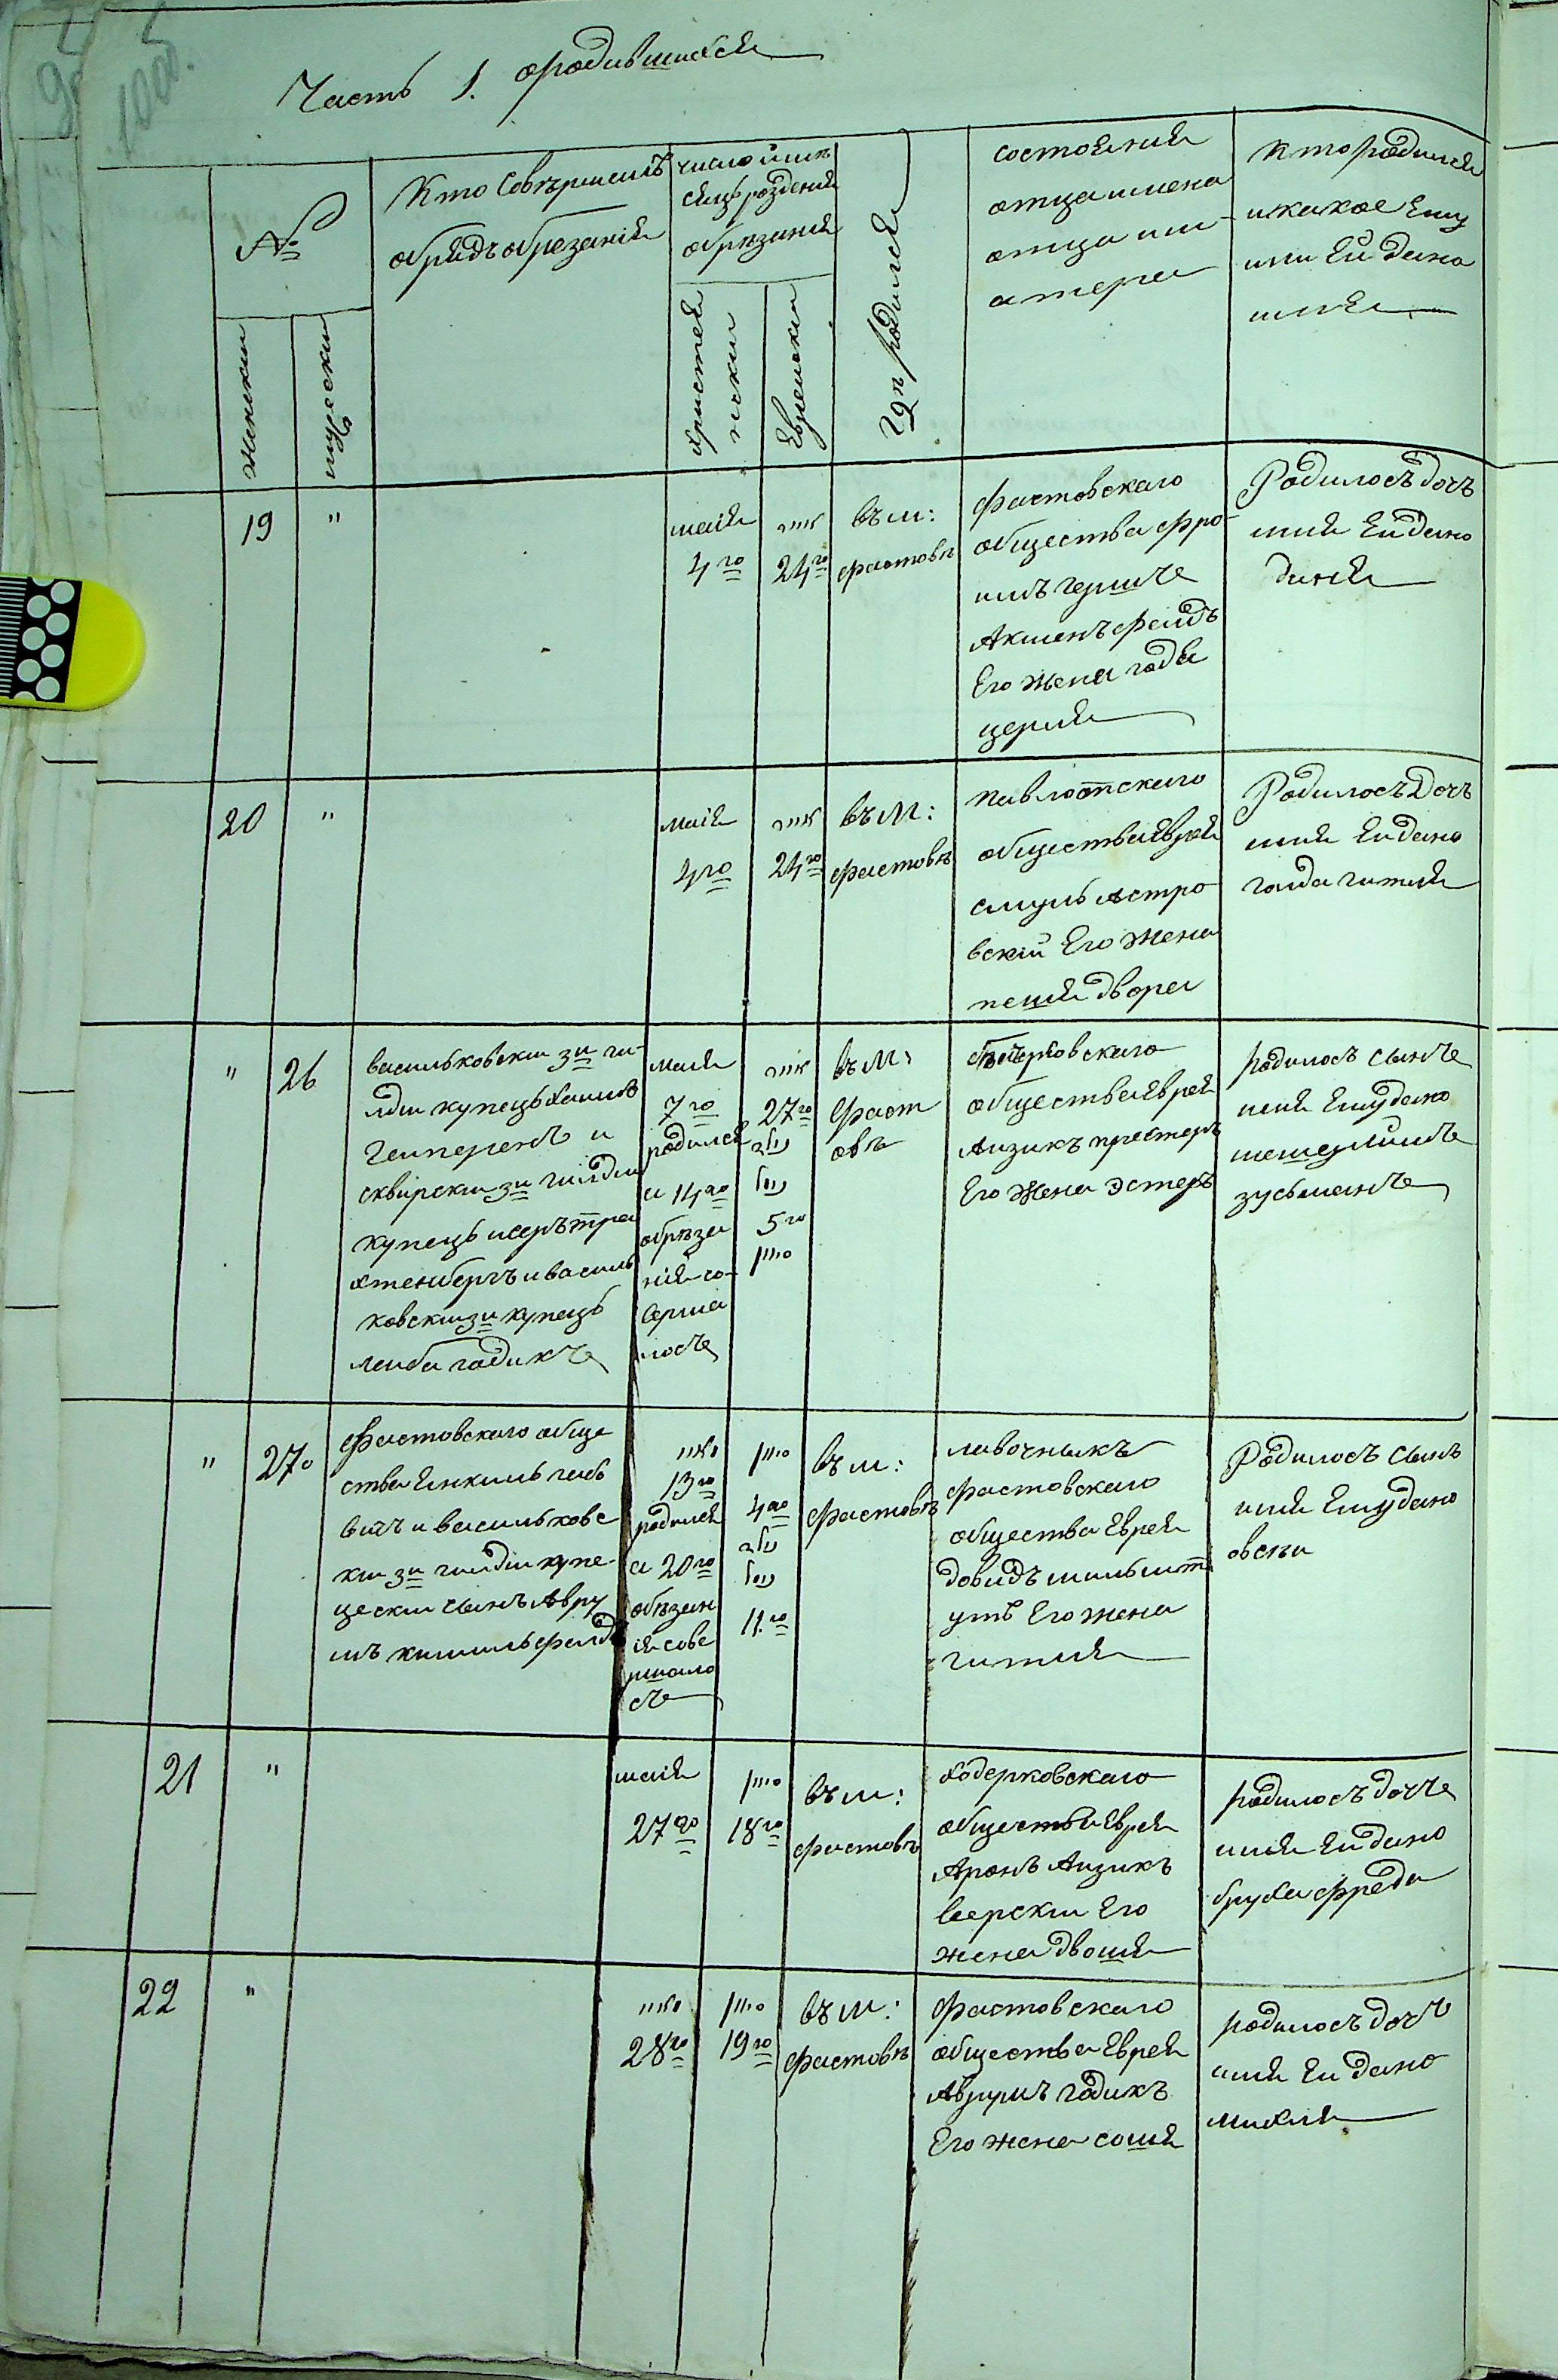 100об.
Часть 1. ородившихся
№
женский
мужеский
Кто Совѣршилъ
обрядъ обрезанія
число и мѣ
сяцъ рожденія
обрѣзанія
христия
нский
Еврейский
Гдѣ родился
состояния
отца имена
отца и м
атери
Кто родился
и какое Ему
или Ей дано
имя
19
"
маія
4го
24го
въ м:
фастовѣ
фастовскаго
общества фро
имъ гершъ
Акшенъфелдъ
Его жена годя
церля
Родилосъ дочъ
имя Ей дано
диня
20
"
маія
4го
24го
въ м:
фастовѣ
павлотскаго
общества Еврей
смулъ астро
вский Его жена
песия двора
Родилосъ дочъ
имя Ей дано
голда гитля
"
26
васильковский 3й ги
лдии купецъ хаимъ
Гемперенъ и
сквирский 3й гилдии
купецъ исеръ тра
хтенбергъ и василь
ковский 3й купецъ
лейба годикъ
маия
7го
родился
а 14го
обрѣза
ния со
верша
лосъ
27го
5го
въ м:
Фаст
овѣ
общества Еврей
Аизикъ престеръ
Его жена эстеръ
родилосъ сынъ
имя Ему дано
мешулимъ
зусьманъ
"
27
Фастовскаго обще
ства Янкиль лейбо
вичъ и васильковс
кий 3й гилдии купе
ческий сынъ Авру
мъ кишильфелдъ
13го
родился
а 20го
обѣзан
ия сове
ршало
съ
4го
11го
въ м:
фастовѣ
лавочныкъ
фастовскаго
общества Еврей
довидъ мильшт
умъ Его жена
гитля
Родилосъ сынъ
имя Ему дано
овсеи
21
"
маія
27го
18го
въ м:
фастовѣ
ходерковскаго
общества Еврей
Аронъ Аизикъ
верский Его
жена двося
родилосъ дочъ
имя Ей дано
бруха фреда
22
"
28го
19го
въ м:
фастовѣ
Фастовскаго
общества Еврей
Аврумъ годикъ
Его жена сося
родилосъ дочъ
имя Ей дано
михля